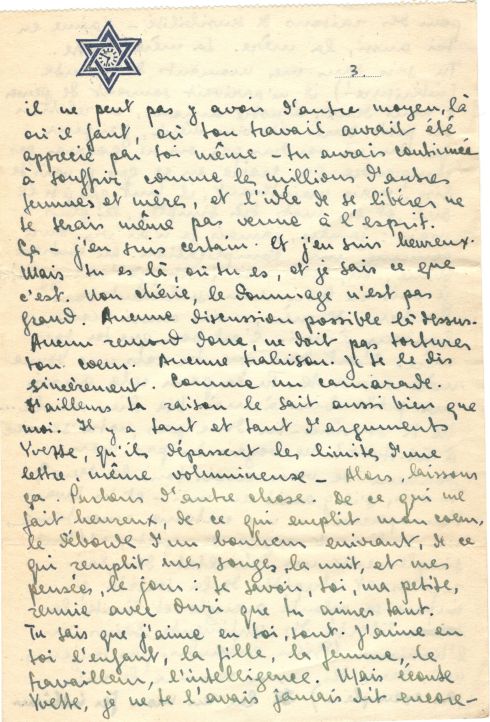 3
il ne peut pas y avoir d'autre moyen, là
où il faut, où ton travail aurait été
apprécié par toi même – tu aurais continuée
à souffrir, comme les millions d'autres
femmes et mères, et l'idée de se libérer ne
te serais même pas venue à l'esprit.
Ça – j'en suis certain. Et j'en suis heureux.
Mais tu es là, où tu es, et je sais ce que
c'est. Non chérie, le dommage n'est pas
grand. Aucune discussion possible là-dessus.
Aucun remord donc, ne doit pas torturer
ton coeur. Aucune trahison. Je te le dis
sincèrement. Comme un camarade.
D'ailleurs ta raison le sait aussi bien que
moi. Il y a tant et tant d'arguments
Yvette, qu'ils dépassent les limites d'une
lettre, même volumineuse – Alors, laissons
ça Parlons d'autre chose. De ce qui me
fait heureux, de ce qui emplit mon coeur,
le déborde d'un bonheur enivrant, de ce
qui remplit mes songes, la nuit, et mes
pensées, le jour : te savoir, toi, ma petite,
réunie avec Ouri que tu aimes tant.
Tu sais que j'aime en toi, tout. J'aime en
toi l'enfant, la fille, la femme, le
travailleur, l'intelligence. Mais écoute
Yvette, je ne te l'avais jamais dit encore –